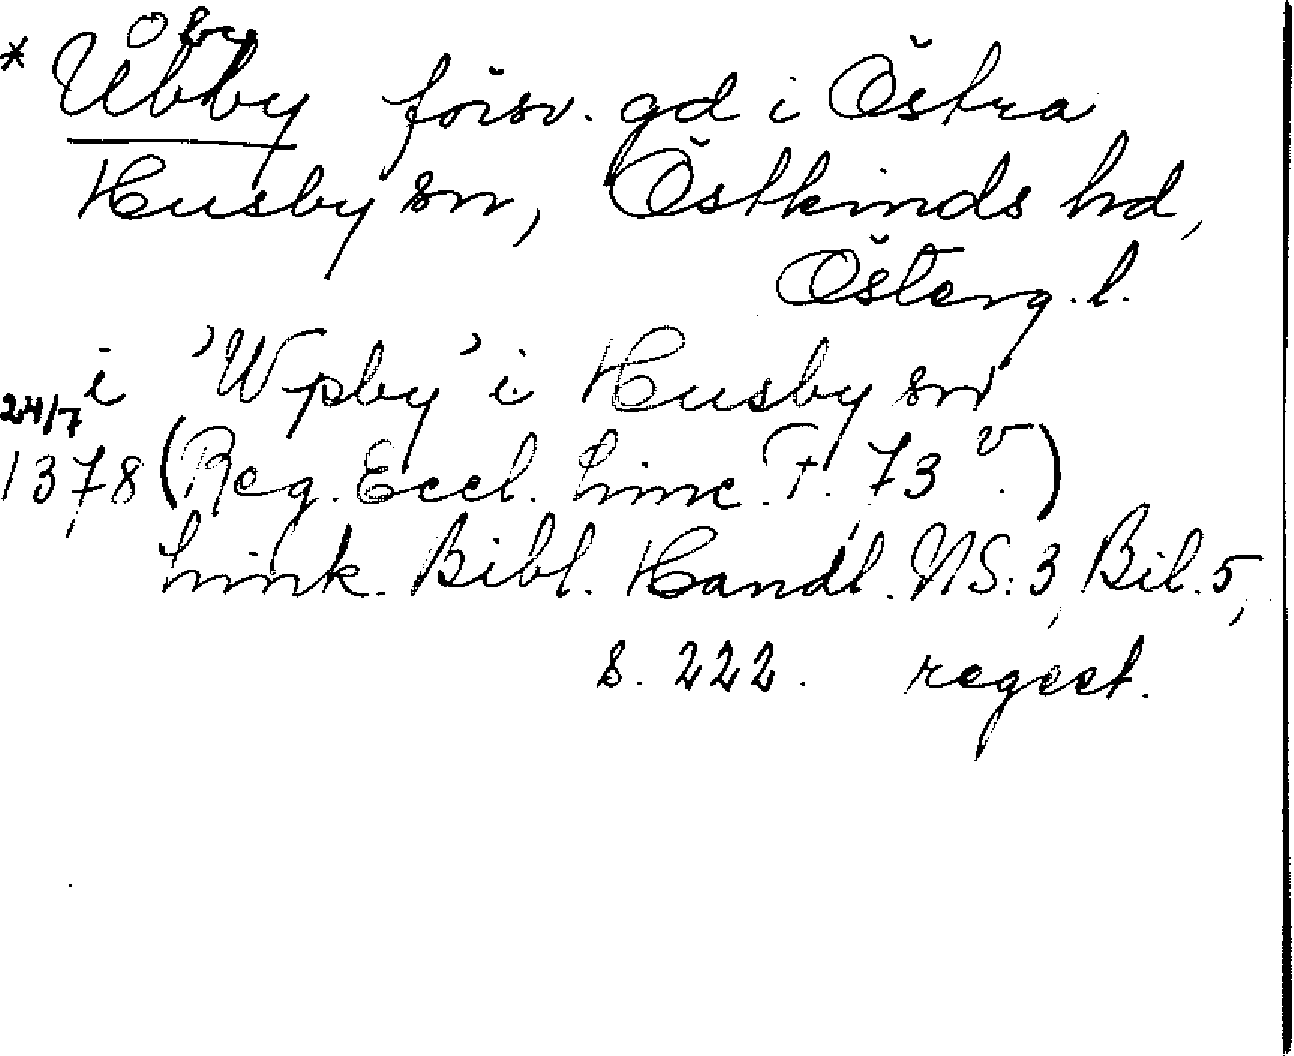 Oby
* Ubby försv. gd i Östra
Husby sn, Östkinds hd,
Österg. l.
i 'Wpby' i Husby sn
24/7
1378 (Reg. Eccl. Linc. F. 73 v.)
Link. Bibl. Handl. NS: 3, Bil. 5,
s. 222. regest.